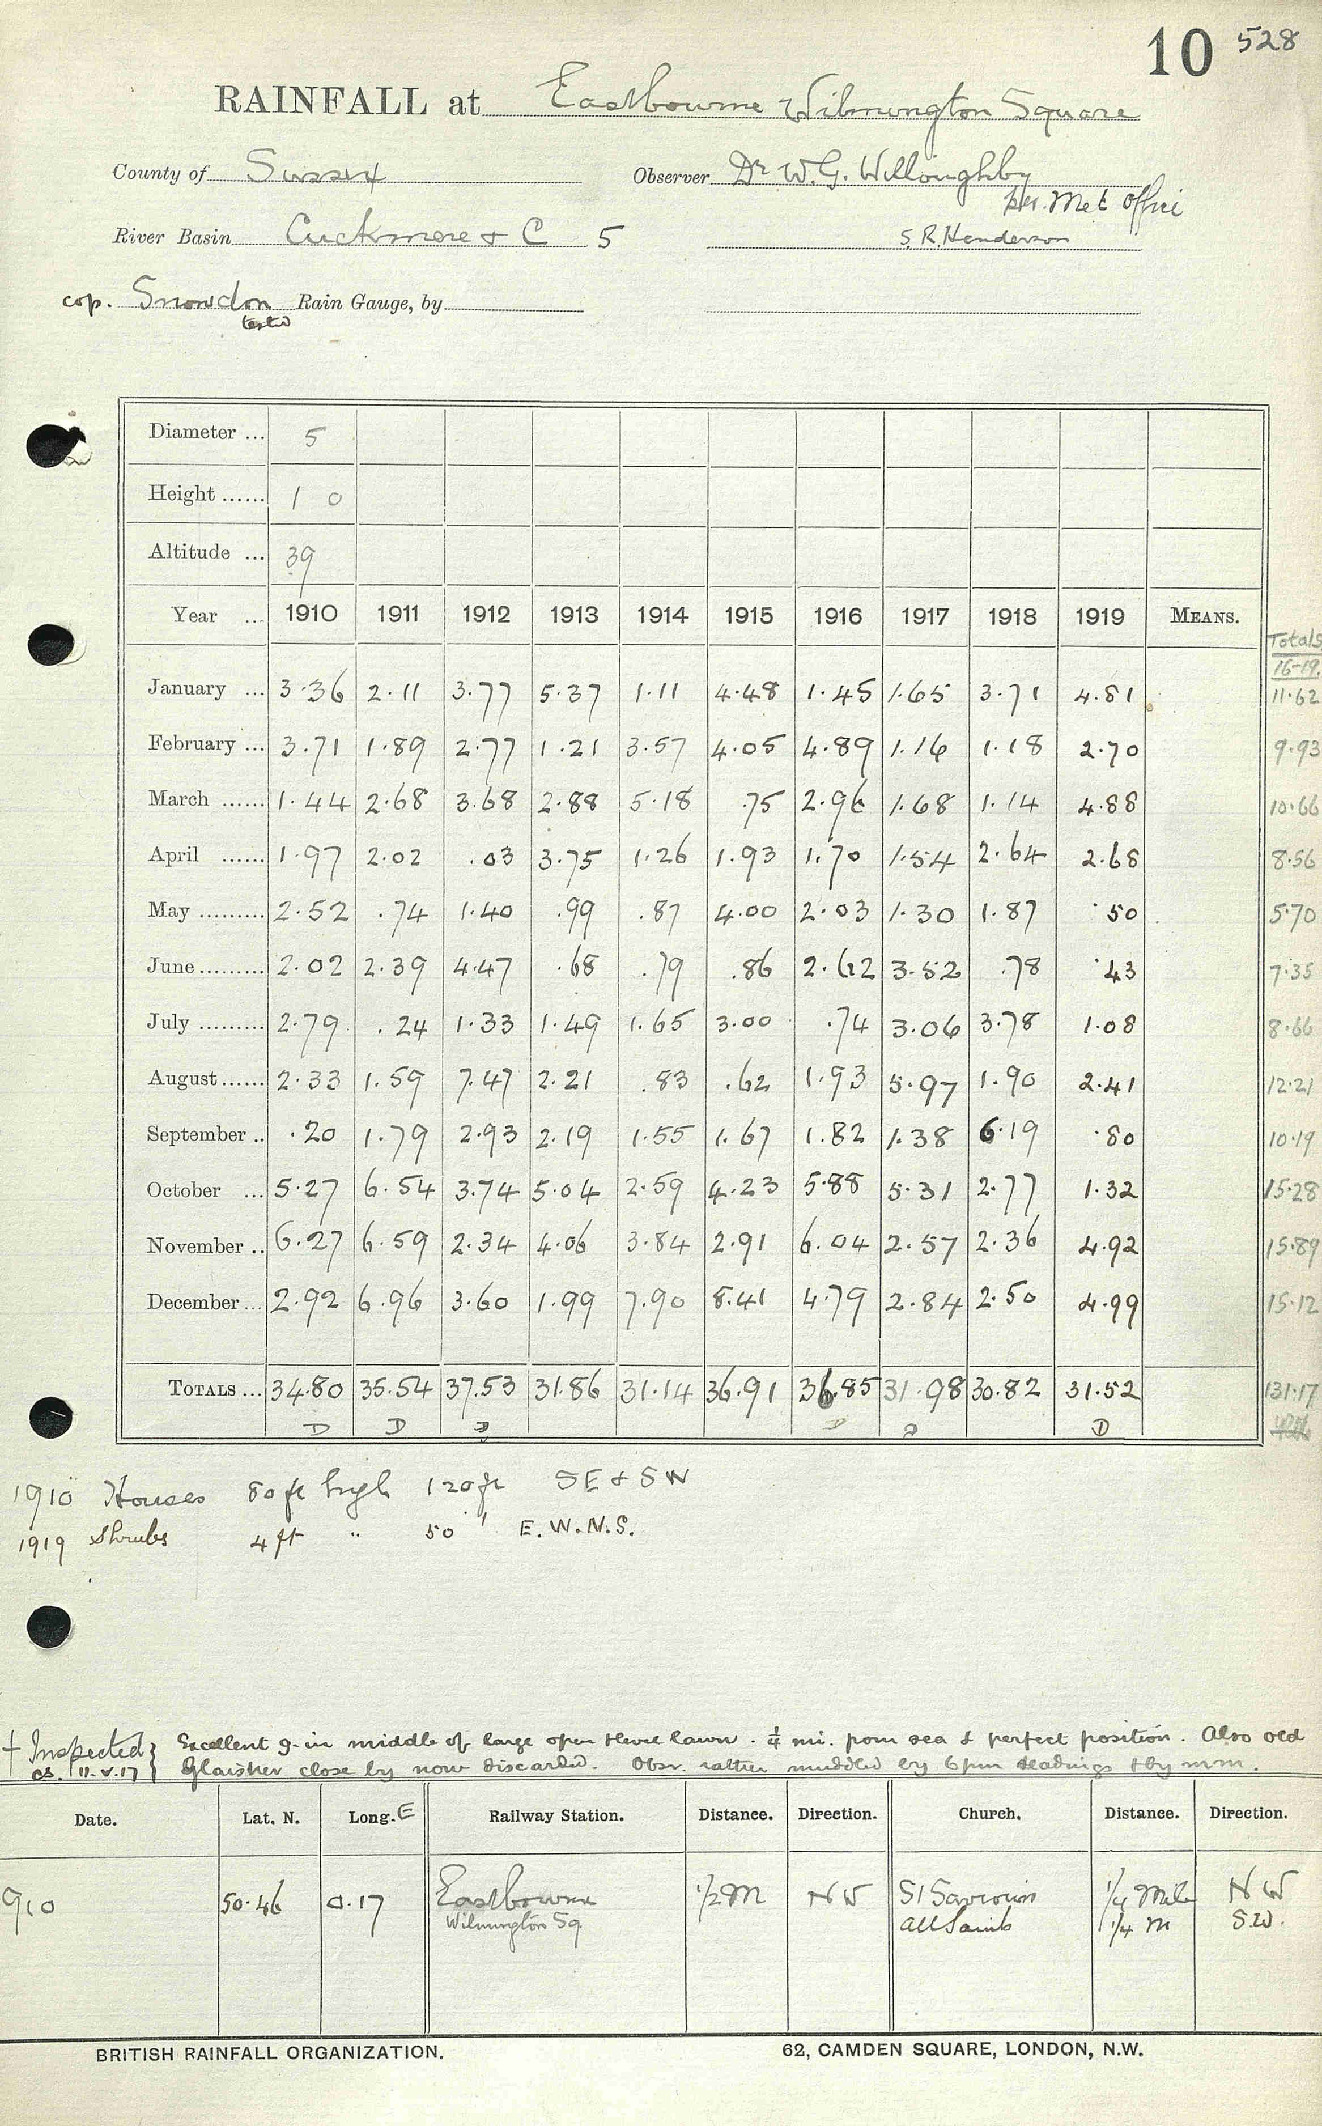 10 528
RAINFALL at Eastbourne Wilmington Square
County of Sussex Observer Dr W. G. Willoughby
per. Met Office
River Basin Cuckmere & C 5 S. R. Henderson
cop. Snowdon Rain Gauge, by
tested
Diameter ... 5
Height ...... 1 0
Altitude ... 39
Year ... 1910 1911 1912 1913 1914 1915 1916 1917 1918 1919 MEANS. Totals
16-19.
January ... 3.36 2.11 3.77 5.37 1.11 4.48 1.45 1.65 3.71 4.81 11.62
February ... 3.71 1.89 2.77 1.21 3.57 4.05 4.89 1.16 1.18 2.70 9.93
March ...... 1.44 2.68 3.68 2.88 5.18 .75 2.96 1.68 1.14 4.88 10.66
April ...... 1.97 2.02 .03 3.75 1.26 1.93 1.70 1.54 2.64 2.68 8.56
May ......... 2.52 .74 1.40 .99 .87 4.00 2.03 1.30 1.87 .50 5.70
June ......... 2.02 2.39 4.47 .68 .79 .86 2.62 3.52 .78 .43 7.35
July ......... 2.79 .24 1.33 1.49 1.65 3.00 .74 3.06 3.78 1.08 8.66
August ...... 2.33 1.59 7.47 2.21 .83 .62 1.93 5.97 1.90 2.41 12.21
September .. .20 1.79 2.93 2.19 1.55 1.67 1.82 1.38 6.19 .80 10.19
October ... 5.27 6.54 3.74 5.04 2.59 4.23 5.88 5.31 2.77 1.32 15.28
November .. 6.27 6.59 2.34 4.06 3.84 2.91 6.04 2.57 2.36 4.92 15.89
December ... 2.92 6.96 3.60 1.99 7.90 8.41 4.79 2.84 2.50 4.99 15.12
TOTALS ... 34.80 35.54 37.53 31.86 31.14 36.91 36.85 31.98 30.82 31.52 131.17
D D D D D D
1910 Houses 80 ft high 120 ft SE & SW
1919 Shrubs 4 ft " 50 ' E. W. N. S.
+ Inspected } Excellent g. in middle of large open lawn. ¼ mi. from sea & perfect position. Also old
cs. 11.v.17 } Glaisher close by now discarded. Obsr. rather muddled by 6pm readings & by mm.
Date. Lat. N. Long. E Railway Station. Distance. Direction. Church. Distance. Direction.
910 50.46 0.17 Eastbourne 1/2 M NW St Saviours 1/4 Mile NW
Wilmington Sq All Saints 1/4 M S.W.
BRITISH RAINFALL ORGANIZATION. 62, CAMDEN SQUARE, LONDON, N.W.